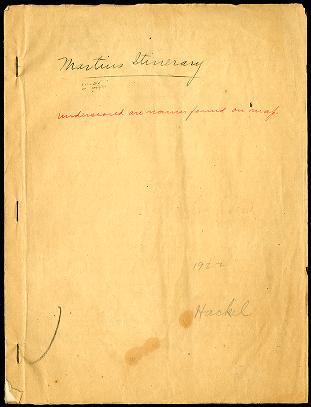 Martius Itinerary
underscored are names found on map.
1922
Hackel